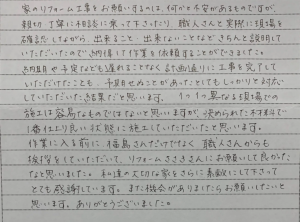 家のリフォーム工事をお願いするのは、何かと不安があるものですが、
親切丁寧に相談に乗って下さったり、職人さんと実際に現場を
確認しながら、出来ること・出来ないことなどきちんと説明して
いただいたので納得して作業を依頼することができました。
納期や予定なども遅れることなく計画通りに工事を完了して
いただけたことも、予期せぬことがあったとしてもしっかりと対応
していただいた結果だと思います。1つ1つ異なる現場での
施工は容易なものではないと思いますが、決められた材料で
1番仕上り良い状態に施工していただいたと思います。
作業に入る前に、福島さんだけでなく職人さんからも
挨拶をしていただいて、リフォームさきさきにお願いして良かった
なと思いました。私達の大切な家をさらに素敵にして下さって
とても感謝しています。また機会がありましたらお願いしたいと
思います。ありがとうございました。